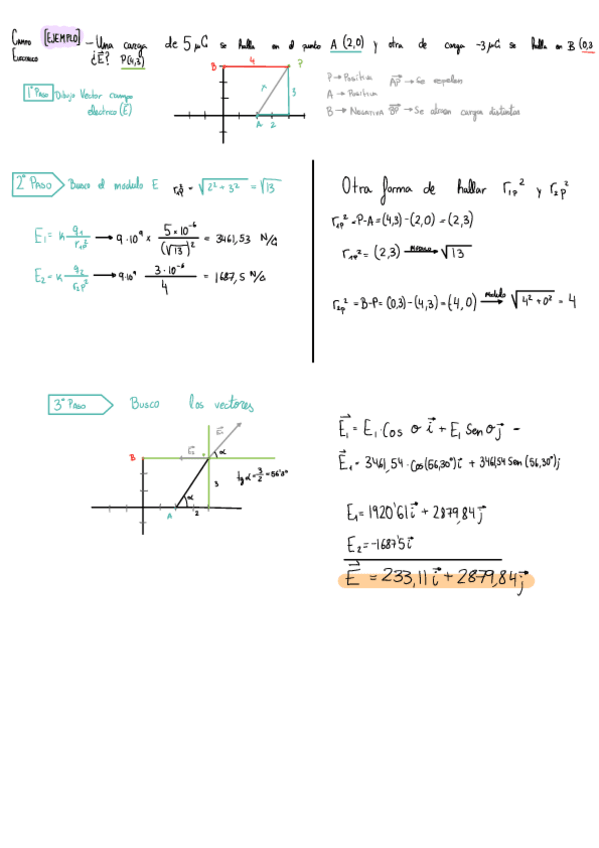 Campo [EJEMPLO] — Una carga de 5 μC se halla en el punto A (2,0) y otra de carga -3 μC se halla en B (0,3
Electrico ¿E⃗? P(4,3)
1º Paso Dibujo Vector campo
electrico (E⃗)
B 4 P
r 3
A 2
P → Positiva AP⃗ → Se repelen
A → Positiva
B → Negativa BP⃗ → Se atraen cargas distintas
2º Paso Busco el modulo E = √(2² + 3²) = √13
E₁ = K q₁/r₁p² → 9·10⁹ × 5×10⁻⁶/(√13)² = 3461,53 N/C
E₂ = K q₂/r₂p² → 9·10⁹ 3·10⁻⁶/4 = 1687,5 N/C
Otra forma de hallar r₁p² y r₂p²
r₁p² = P-A = (4,3) - (2,0) = (2,3)
r₁p² = (2,3) → Modulo √13
r₂p² = B-P = (0,3) - (4,3) = (4,0) → modulo √(4² + 0²) = 4
3º Paso Busco los vectores
E⃗₁
B E₂ α
tg α = 3/2 = 56'3º
3
α
A 2
E⃗₁ = E₁·Cos σ i⃗ + E₁ Sen σ j⃗ =
E⃗₁ = 3461,54 · Cos(56,30º) i + 3461,54 Sen (56,30º) j
E₁ = 1920'61 i⃗ + 2879,84 j⃗
E₂ = -1687'5 i⃗
E⃗ = 233,11 i⃗ + 2879,84 j⃗